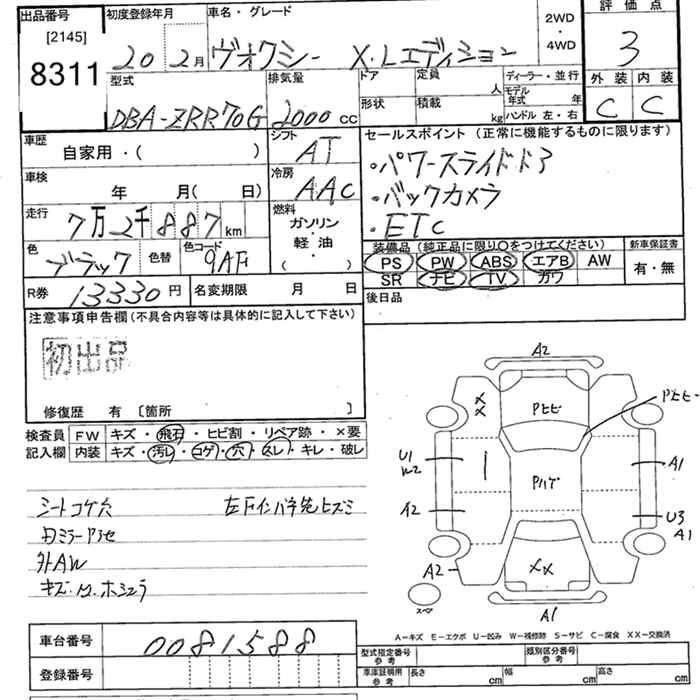 出品番号
[2145]
8311
初度登録年月
20 2月
車名・グレード
ヴォクシー X・Lエディション
2WD
・
4WD
評価点
3
外装 内装
C C
型式
DBA-ZRR70G
排気量
2000 cc
ドア
定員
人
形状
積載
kg
ディーラー・並行
モデル年式 年
ハンドル 左・右
車歴
自家用・( )
シフト
AT
車検
年 月( 日)
冷房
AAC
走行
7万2千887km
燃料
ガソリン・
軽油・
( )
色
ブラック
色替
色コード
9AF
R券 13330円
名変期限 月 日
セールスポイント (正常に機能するものに限ります)
・パワースライドドア
・バックカメラ
・ETC
装備品 (純正品に限り○をつけてください)
PS PW ABS エアB AW
SR ナビ TV カワ
新車保証書
有・無
後日品
注意事項申告欄(不具合内容等は具体的に記入して下さい)
初出品
修復歴 有 〔箇所 〕
検査員
記入欄
FW キズ・飛石・ヒビ割・リペア跡・×要
内装 キズ・汚レ・コゲ・穴・スレ・キレ・破レ
シートコゲ穴
外AW
A2
XX
Pヒビ
Pヒビ
U1
W2
Pハゲ
A1
A2
U3
A1
A2
XX
スペア
A1
A-キズ E-エクボ U-凹み W-補修跡 S-サビ C-腐食 XX-交換済
車台番号 0081588
登録番号
型式指定番号
参考
類別区分番号
参考
車庫証明用
参考
長さ cm
幅 cm
高さ cm